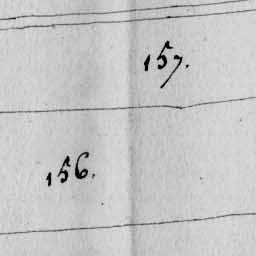 157.
156.